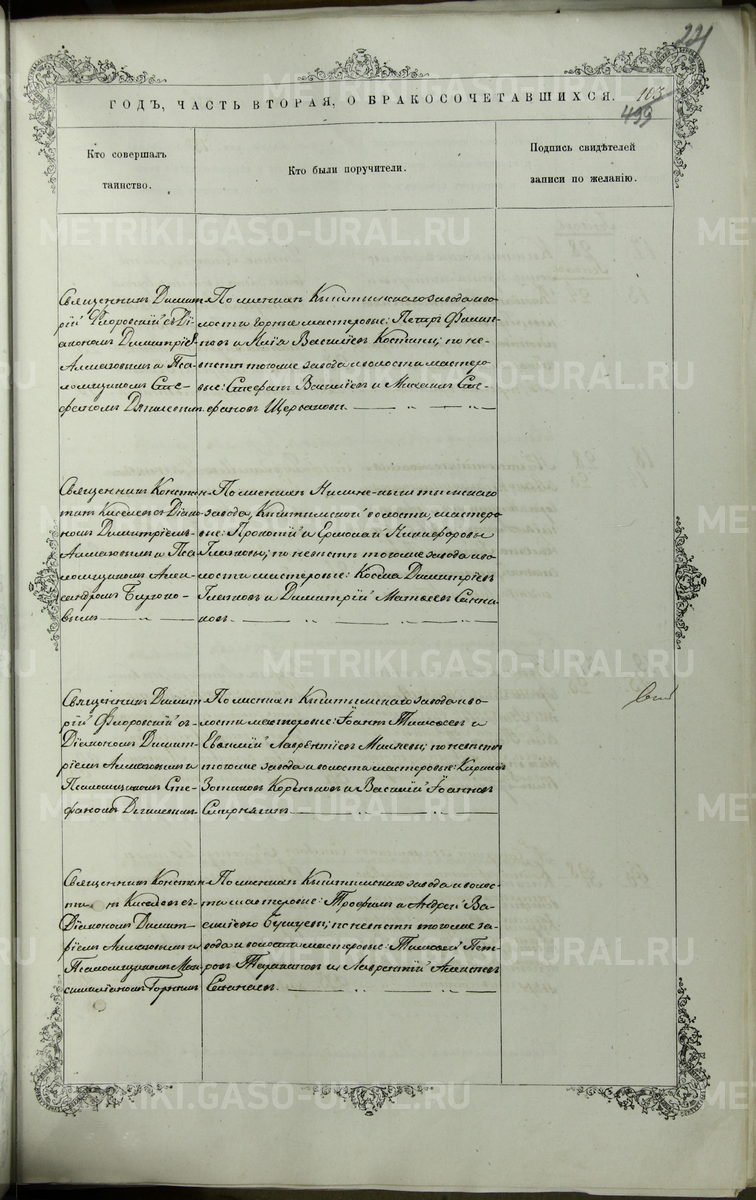 221
ГОДЪ, ЧАСТЬ ВТОРАЯ, О БРАКОСОЧЕТАВШИХСЯ.
163
499
Кто совершалъ
таинство.
Кто были поручители.
Подпись свидѣтелей
записи по желанію.
Священникъ Димит-
рій Флоровскій съ Ді-
акономъ Димитріемъ
Алмазовымъ и Пса-
ломщикомъ Сте-
фаномъ
По женихѣ Кыштымскаго завода и во-
лости горные мастеровые: Петръ Филип-
повъ и Илія Василіевъ Костины; по не-
вѣстѣ тогоже завода и волости мастеро-
вые: Стефанъ Василіевъ и Михаилъ Сте-
фановъ Щербаковы.
Священникъ Констан-
тинъ Киселевъ съ Діако-
номъ Димитріемъ
Алмазовымъ и Пса-
ломщикомъ Алек-
сандромъ Бирюко-
вымъ
По женихѣ Нижне-Кыштымскаго
завода, Кыштымской волости, мастеро-
вые: Прокопій и Ермолай Никифоровы
Глазковы; по невѣстѣ тогоже завода и во-
лости мастеровые: Косма Димитріевъ
Глазковъ и Димитрій Матвеевъ
Священникъ Димит-
рій Флоровскій съ
Діакономъ Димит-
ріемъ Алмазовымъ и
Псаломщикомъ Сте-
фаномъ
По женихѣ Кыштымскаго завода и во-
лости мастеровые: Іоаннъ Тимофеевъ и
Евфимій Лаврентіевъ Мизяевы; по невѣстѣ
тогоже завода и волости мастеровые: Кириллъ
Зотиковъ Кореньковъ и Василій Іоанновъ
Смирнягинъ
Священникъ Констан-
тинъ Киселевъ съ
Діакономъ Димит-
ріемъ Алмазовымъ и
Псаломщикомъ Мак-
симиліаномъ Горнымъ
По женихѣ Кыштымскаго завода и волос-
ти мастеровые: Трофимъ и Андрей Ва-
силіевы Бугуевы; по невѣстѣ тогоже за-
вода и волости мастеровые: Тимофей Пет-
ровъ Таракановъ и Лаврентій Алексеевъ
METRIKI.GASO-URAL.RU
METRIKI.GASO-URAL.RU
METRIKI.GASO-URAL.RU
METRIKI.GASO-URAL.RU
METRIKI.GASO-URAL.RU
METRIKI.GASO-URAL.RU